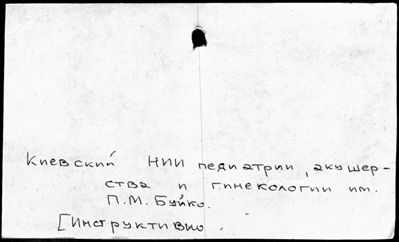 Киевский НИИ педиатрии, акушер-
ства и гинекологии им.
П.М. Буйко.
[Инструктивно.